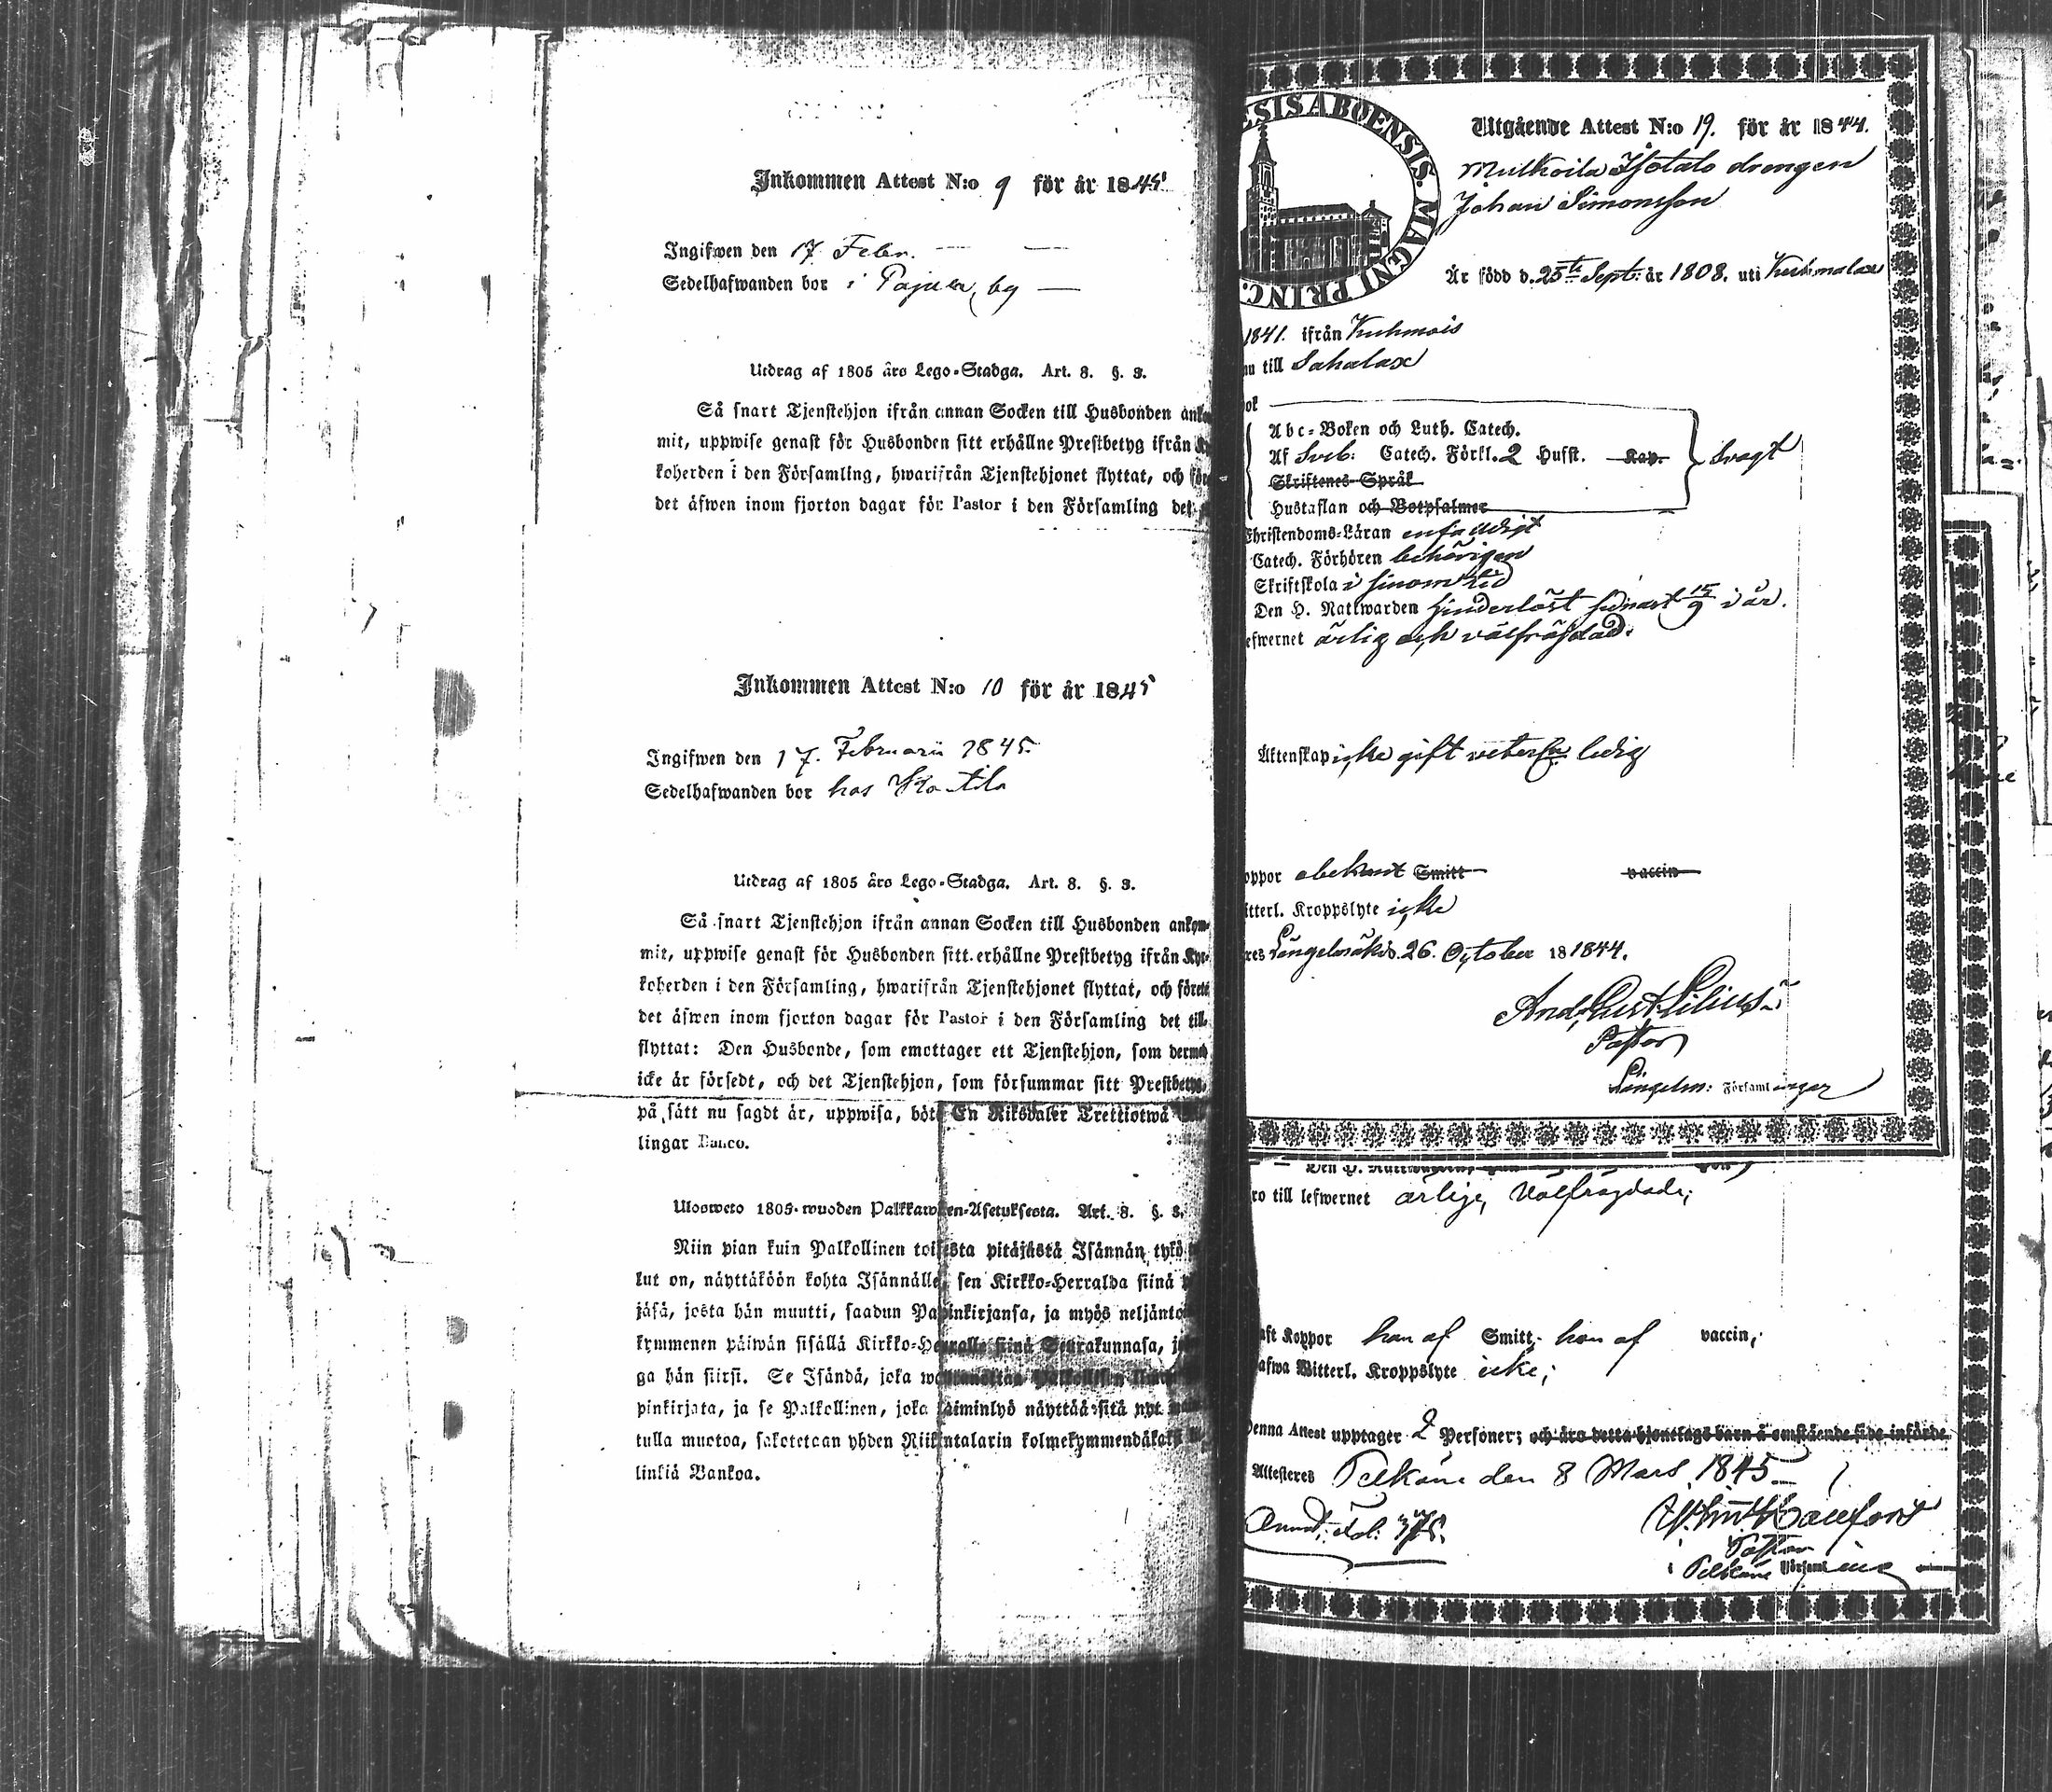 Inkommen Attest N:o 9 för år 1845
Ingifwen den 17 Febr.
Sedelhafwanden bor i Pajula by
Utdrag af 1805 års Lego-Stadga. Art. 8. §. 3.
Så snart Tjenstehjon ifrån annan Socken till Husbonden
mit, uppwise genast för Husbonden sitt erhållne Prestbetyg ifrån
koherden i den Församling, hwarifrån Tjenstehjonet flyttat, och
det äfwen inom fjorton dagar för Pastor i den Församling det
Inkommen Attest N:o 10 för år 1845
Ingifwen den 17. Februarii 1845.
Sedelhafwanden bor hos
Utdrag af 1805 års Lego-Stadga. Art. 8. §. 3.
Så snart Tjenstehjon ifrån annan Socken till Husbonden ankom-
mit, uppwise genast för Husbonden sitt erhållne Prestbetyg ifrån Kyr-
koherden i den Församling, hwarifrån Tjenstehjonet flyttat, och förete
det äfwen inom fjorton dagar för Pastor i den Församling det till-
flyttat: Den Husbonde, som emottager ett Tjenstehjon, som dermed
icke är försedt, och det Tjenstehjon, som försummar sitt Prestbetyg,
på sätt nu sagdt är, uppwisa, böte En Riksdaler Trettiotwå
lingar Banco.
Ulosweto 1805 wuoden Palkkawäen-Asetuksesta. Art. 8. §. 3.
Niin pian kuin Palkollinen toisesta pitäjästä Isännän tykö
lut on, näyttäköön kohta Isännälle, sen Kirkko-Herralda siinä
jäsä, josta hän muutti, saadun Papinkirjansa, ja myös neljänto
kymmenen päiwän sisällä Kirkko-Herralle siinä Seurakunnasa,
ga hän siirsi. Se Isändä, joka Palkollisen
pinkirjata, ja se Palkollinen, joka laiminlyö näyttää sitä nyt
tulla muotoa, sakotetaan yhden Riikintalarin kolmekymmendäkaksi
linkiä Bankoa.
ESIS ABOENSIS. MAGNI PRINC.
Utgående Attest N:o 19. för år 1844.
Mulkoila Isotalo drengen
Johan Simonsson
Är född d. 25te Sept: år 1808. uti Kuhmalax
1841. ifrån Kuhmois
nu till Sahalax
ok
Abc-Boken och Luth. Catech.
Af Sveb: Catech. Förkl. 2 Husst. Kap. Svagt
Skriftenes Språk
Hustaflan och Botpsalmer
Christendoms-Läran enfaldigt
Catech. Förhören behörigen
Skriftskola i sinom tid
Den H. Nattwarden hinderlöst senast 15/9 i år.
efwernet ärlig och välfräjdad.
Äktenskap icke gift veterl. ledig
oppor obekant Smitt vaccin
itterl. Kroppslyte icke
res Längelmäki d. 26. October 18 1844.
And. Gust. Lilius
Pastor
Längelm: Församlingar
Den H. Nattwarden
ro till lefwernet ärlige, Välfrägdade;
aft Koppor hon af Smitt; han af vaccin;
afwa Witterl. Kroppslyte icke;
Denna Attest upptager 2 Personer; och äro detta hjonelags barn å omstående sida införde
Attesteres Pelkäne den 8 Mars 1845
Pastor
i Pelkäne Församling